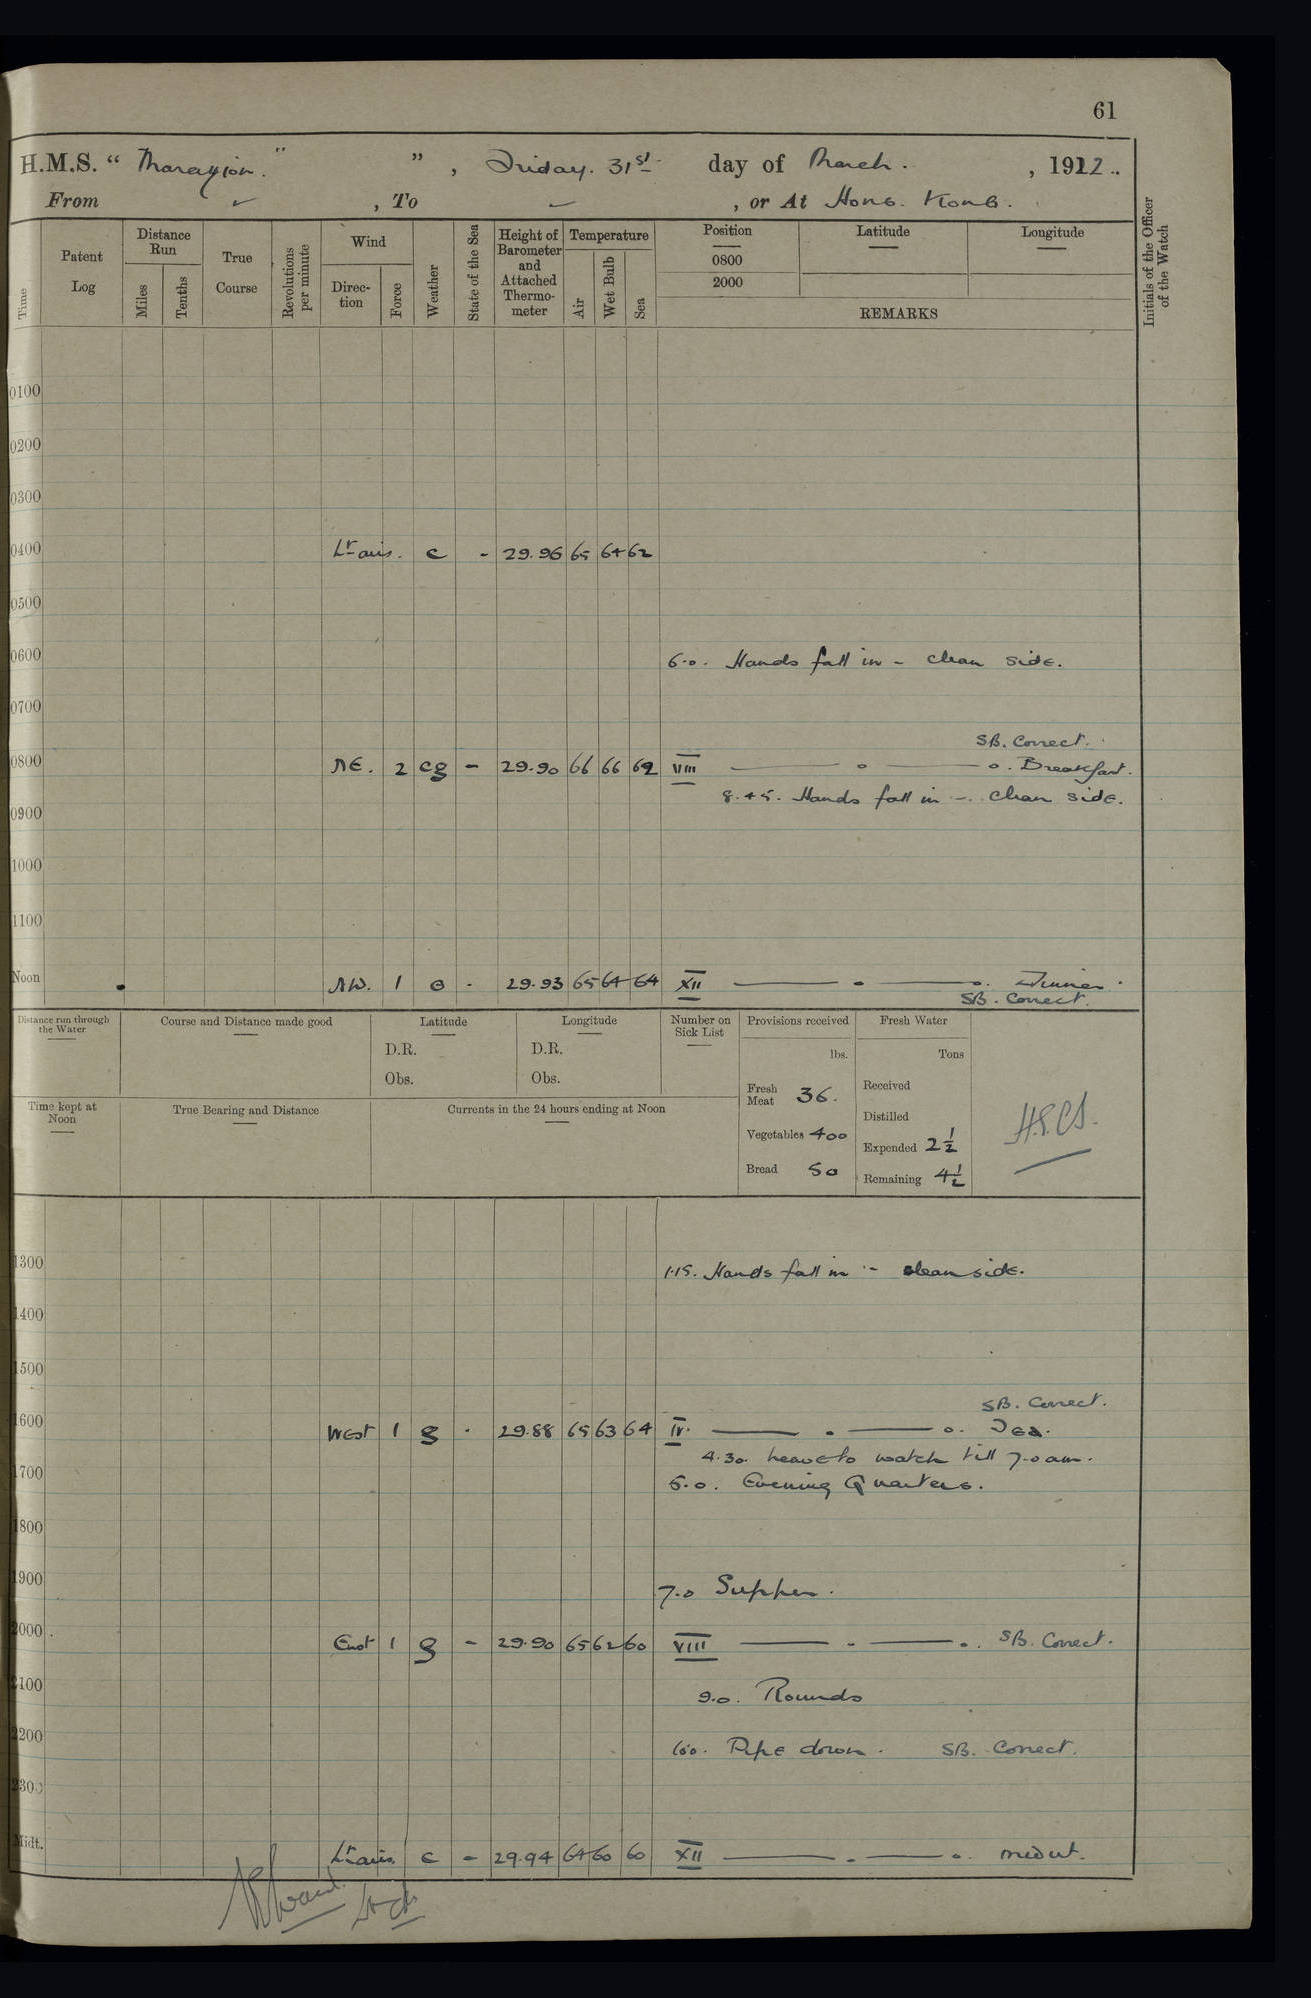 61
H.M.S. " Marazion. " , Friday. 31st day of March. , 1922.
From ✓ , To ✓ , or At Hong. Kong.
Time
Patent Log
Distance Run
Miles
Tenths
True Course
Revolutions per minute
Wind
Direction
Force
Weather
State of the Sea
Height of Barometer and Attached Thermometer
Temperature
Air
Wet Bulb
Sea
Position
0800
2000
Latitude
Longitude
REMARKS
Initials of the Officer of the Watch
0100
0200
0300
0400 Lt airs. c - 29.96 65 64 62
0500
0600 6.0. Hands fall in - clean side.
0700
SB. Correct.
0800 NE. 2 cg - 29.90 66 66 62 VIII Breakfast.
8.45. Hands fall in - clean side.
0900
1000
1100
Noon NW. 1 o - 29.93 65 64 64 XII Dinner.
SB. Correct.
Distance run through the Water
Course and Distance made good
Latitude
D.R.
Obs.
Longitude
D.R.
Obs.
Number on Sick List
Provisions received
lbs.
Fresh Meat 36.
Vegetables 400
Bread 50
Fresh Water
Tons
Received
Distilled
Expended 2 1/2
Remaining 4 1/2
Time kept at Noon
True Bearing and Distance
Currents in the 24 hours ending at Noon
1300 1.15. Hands fall in - clean side.
1400
1500
SB. Correct.
1600 West 1 g - 29.88 65 63 64 IV. Tea.
4.30. leave to watch till 7.0 am.
1700 5.0. Evening Quarters.
1800
1900 7.0 Supper.
2000 East 1 g - 29.90 65 62 60 VIII SB. Correct.
2100 9.0. Rounds
2200 10.0. Pipe down. SB. Correct.
2300
Midt. Lt airs c - 29.94 64 60 60 XII midnt.